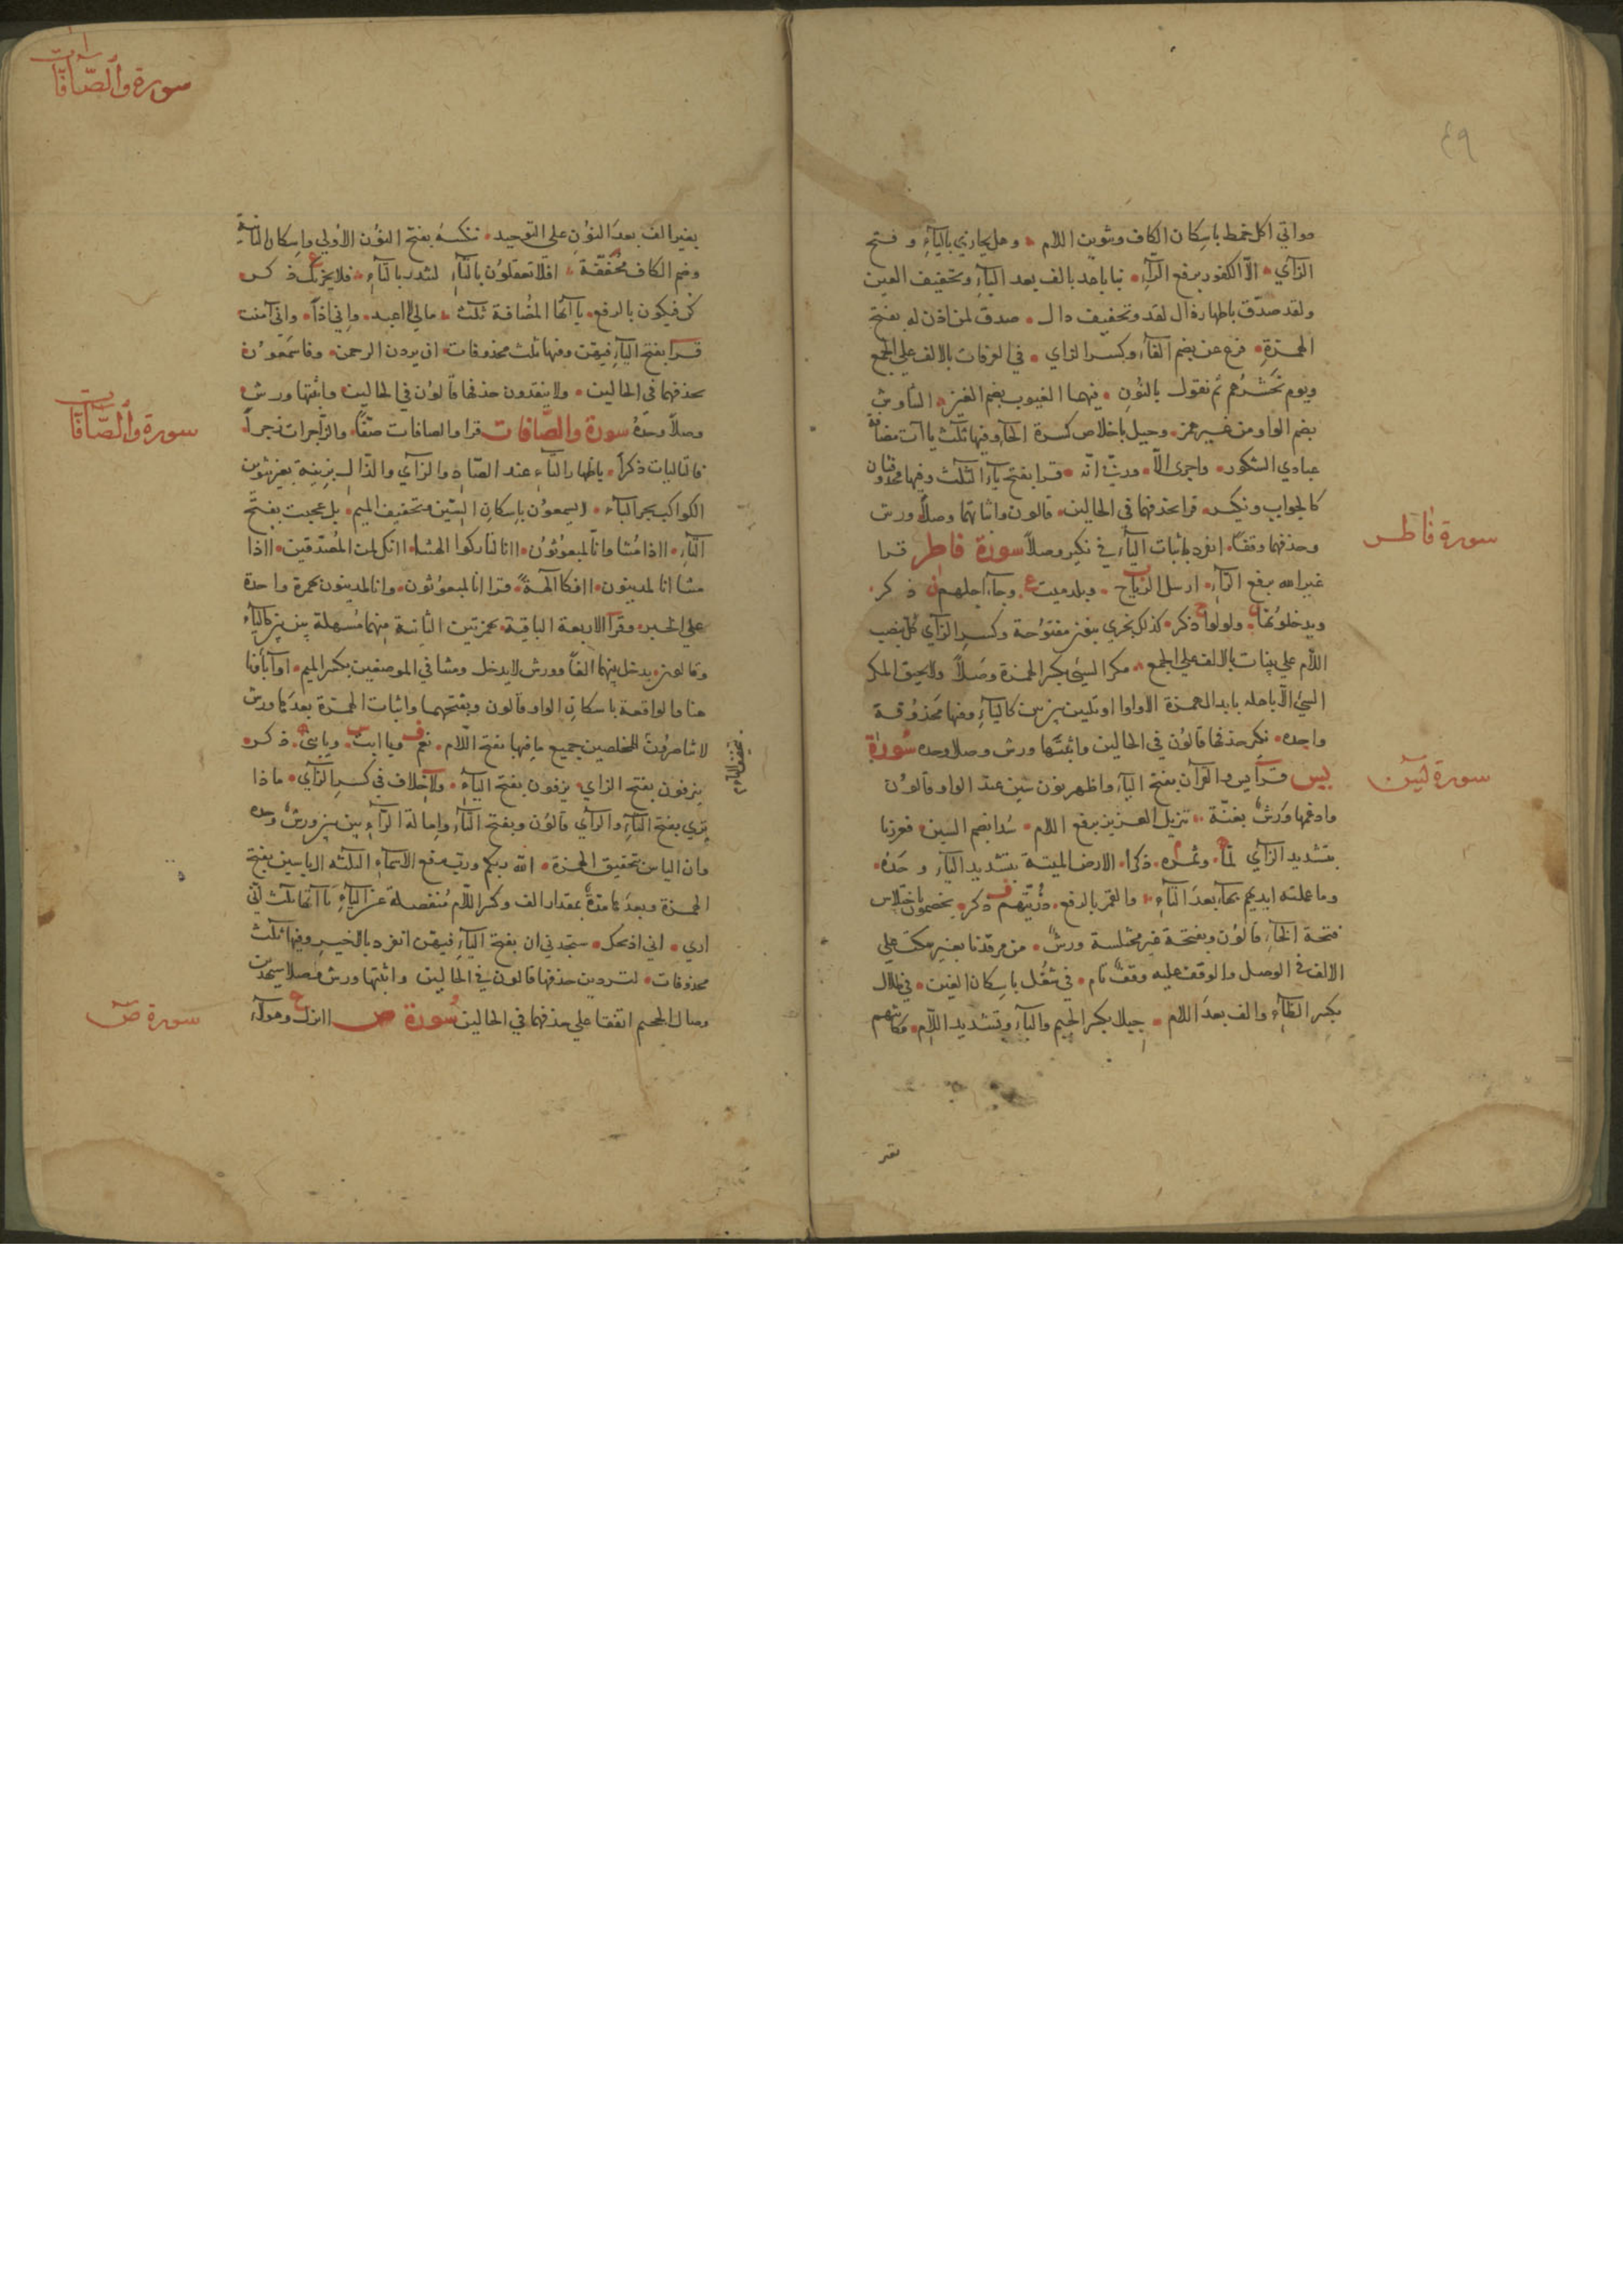 ٤٩
مواتي اكل خمط باسكان الكاف وتنوين اللام وهل يجازي باليآء وفتح
الزآي الا الكفور برفع الرآء نبا باعد بالف بعد البآء وتخفيف العين
ولقد صدق باظهار دال لقد وتخفيف دال صدق لمن اذن له بفتح
الهمزة فزع عن بضم الفآء وكسر الزاي في الغرفات بالالف على الجمع
ويوم نحشرهم ثم نقول بالنون فيهما الغيوب بضم الغين التناوش
بضم الواو من غير همز وحيل باخلاص كسرة الحآء وفيها ثلث ياآت مضافة
عبادي الشكور واجري الا وربي انه قرا بفتح يآء الثلث وفيها محذوفتان
كالجواب ونكير قرا بحذفهما في الحالين قالون واثباتهما وصلا ورش
وحذفهما وقفا انفرد باثبات اليآء في نكير وصلا سورة فاطر قرا
سورة فاطر
غير الله برفع الرآء ارسل الرياح وبلد ميت وجآء اجلهم ذكر
ويدخلونها ولولوا ذكر كذلك نجزي بنون مفتوحة وكسر الزآي كل بنصب
اللام على بينات بالالف على الجمع مكر السيئ بكسر الهمزة وصلا ولا يحيق المكر
السيئ الا باهله بابدال الهمزة الا واوا او تليين بين بين كاليآء وفيها محذوفة
واحده نكير حذفها قالون في الحالين واثبتها ورش وصلا وحده سورة
يس قرآ يس والقرآن بفتح اليآء واظهر نون سين عند الواو قالون
سورة يس
وادغمها ورش بغنة تنزيل العزيز برفع اللام سدا بضم السين فعززنا
بتشديد الزآي لما وثمره ذكرا الارض الميتة بتشديد اليآء وحده
وما عملته ايديهم بهآء بعد التآء والقمر بالرفع ذريتهم ذكر يخصمون باختلاس
فتحة الخآء قالون وبفتحة غير مختلسة ورش من مرقدنا بغير سكت على
الالف في الوصل والوقف عليه وقف تام في شغل باسكان الغين في ظلال
بكسر الظآء والف بعد اللام جبلا بكسر الجيم والبآء وتشديد اللام مكانتهم
سورة والصافات
بغير الف بعد النون على التوحيد ننكسه بفتح النون الاولى واسكان الثانية
وضم الكاف مخففة افلا تعقلون بالتآء لتنذر بالتآء فلا يحزنك ذكر
كن فيكون بالرفع ياآتها المضافة ثلث مالي لا اعبد واني اذا واني آمنت
قرا بفتح اليآء فيهن وفيها ثلث محذوفات ان يردن الرحمن وفاسمعون
بحذفهما في الحالين ولا ينقذون حذفها قالون في الحالين واثبتها ورش
وصلا وحده سورة والصافات قرا والصافات صفا والزاجرات زجرا
سورة والصافات
فالتاليات ذكرا باظهار التآء عند الصاد والزآي والذال بزينة بغير تنوين
الكواكب بجر البآء لا يسمعون باسكان السين وتخفيف الميم بل عجبت بفتح
التآء ااذا متنا وانا لمبعوثون اانا لتاركوا الهتنا اانك لمن المصدقين ااذا
متنا انا لمدينون اافكا آلهة قرا انا لمبعوثون وانا لمدينون بهمزة واحدة
على الخبر وقرآ الاربعة الباقية بهمزتين الثانية منهما مسهلة بين بين كاليآء
وقالون يدخل بينهما الفا وورش لا يدخل ومتنا في الموضعين بكسر الميم اوآباؤنا
هنا والواقعة باسكان الواو قالون وبفتحهما واثبات الهمزة بعدها ورش
لا تناصرون المخلصين جميع ما فيها بفتح اللام نعم ويا ابت ويا بني ذكر
ينزفون بفتح الزاي يزفون بفتح اليآء ولا خلاف في كسر الزآي ماذا
تري بفتح التآء والرآي قالون وبفتح التآء وامالة الرآء بين بين ورش وحده
وان الياس بتحقيق الهمزة الله ربكم ورب برفع الاسمآء الثلثة الياسين بفتح
الهمزة وبعدها مدة بمقدار الف وكسر اللام منفصلة عن اليآء ياآتها ثلث اني
اري اني اذبحك ستجدني ان بفتح اليآء فيهن انفرد بالخير وفيها ثلث
محذوفات لتردين حذفها قالون في الحالين واثبتها ورش وصلا سيهدين
وصال الجحيم اتفقا على حذفهما في الحالين سورة ص اانزل وهولآء
سورة ص